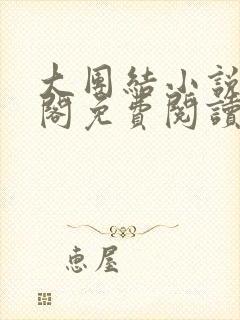 大團結小說
閣免費閱讀
恵屋